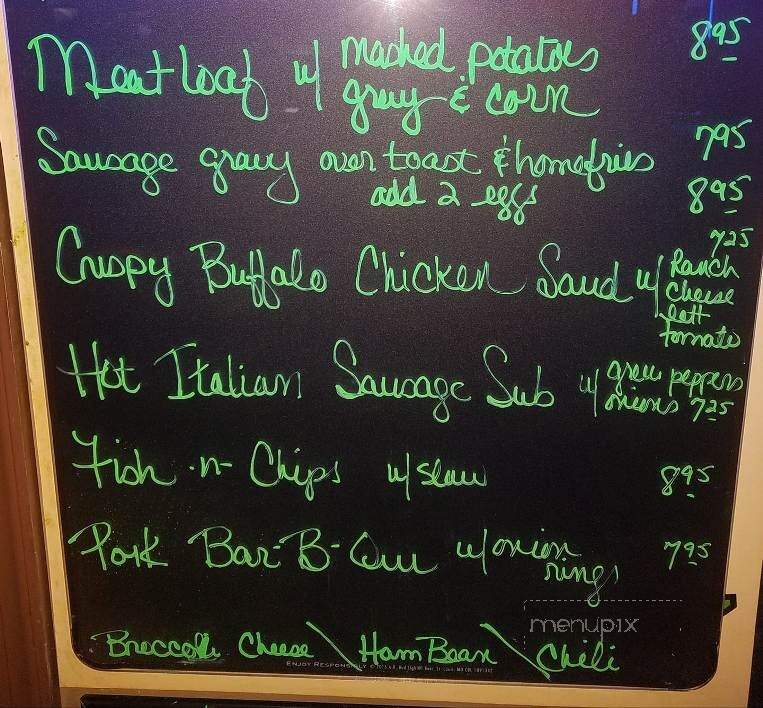 Meatloaf w/ mashed potatoes 8.95
gravy & corn
Sausage gravy over toast & homefries 7.95
add 2 eggs 8.95
7.25
Crispy Buffalo Chicken Sand w/ Ranch
Cheese
lett
tomato
Hot Italian Sausage Sub w/ green peppers
onions 7.25
Fish -n- Chips w/ slaw 8.95
Pork Bar-B-Que w/ onion 7.95
rings
menupix
Broccoli Cheese \ Ham Bean \ Chili
ENJOY RESPONSIBLY